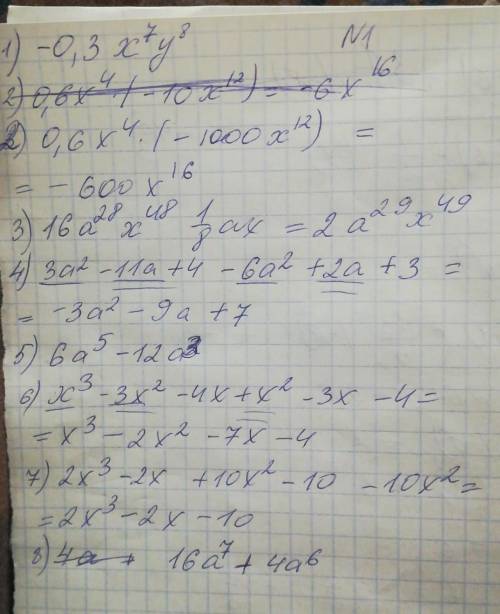 N1
1) -0,3 x⁷y⁸
2) 0,6x⁴ · (-10x¹²) = -6x¹⁶
2) 0,6x⁴ · (-1000x¹²) =
= -600x¹⁶
3) 16a²⁸x⁴⁸ 1/8 ax = 2a²⁹x⁴⁹
4) 3a² - 11a + 4 - 6a² + 2a + 3 =
= -3a² - 9a + 7
5) 6a⁵ - 12a³
6) x³ - 3x² - 4x + x² - 3x - 4 =
= x³ - 2x² - 7x - 4
7) 2x³ - 2x + 10x² - 10 - 10x² =
= 2x³ - 2x - 10
8) 4a + 16a⁷ + 4a⁶